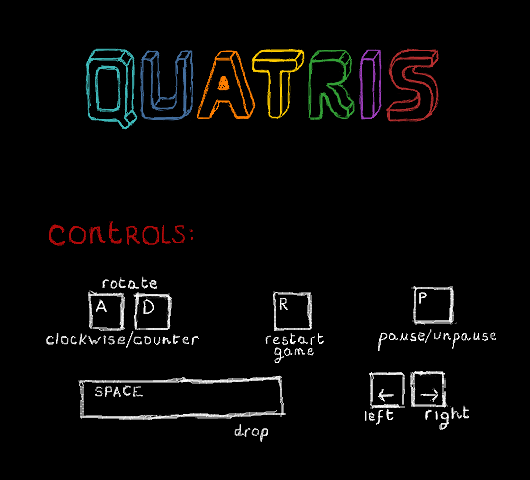 QUATRIS
CONTROLS:
rotate
A D
clockwise/counter
R
restart
game
P
pause/unpause
SPACE
drop
← →
left right